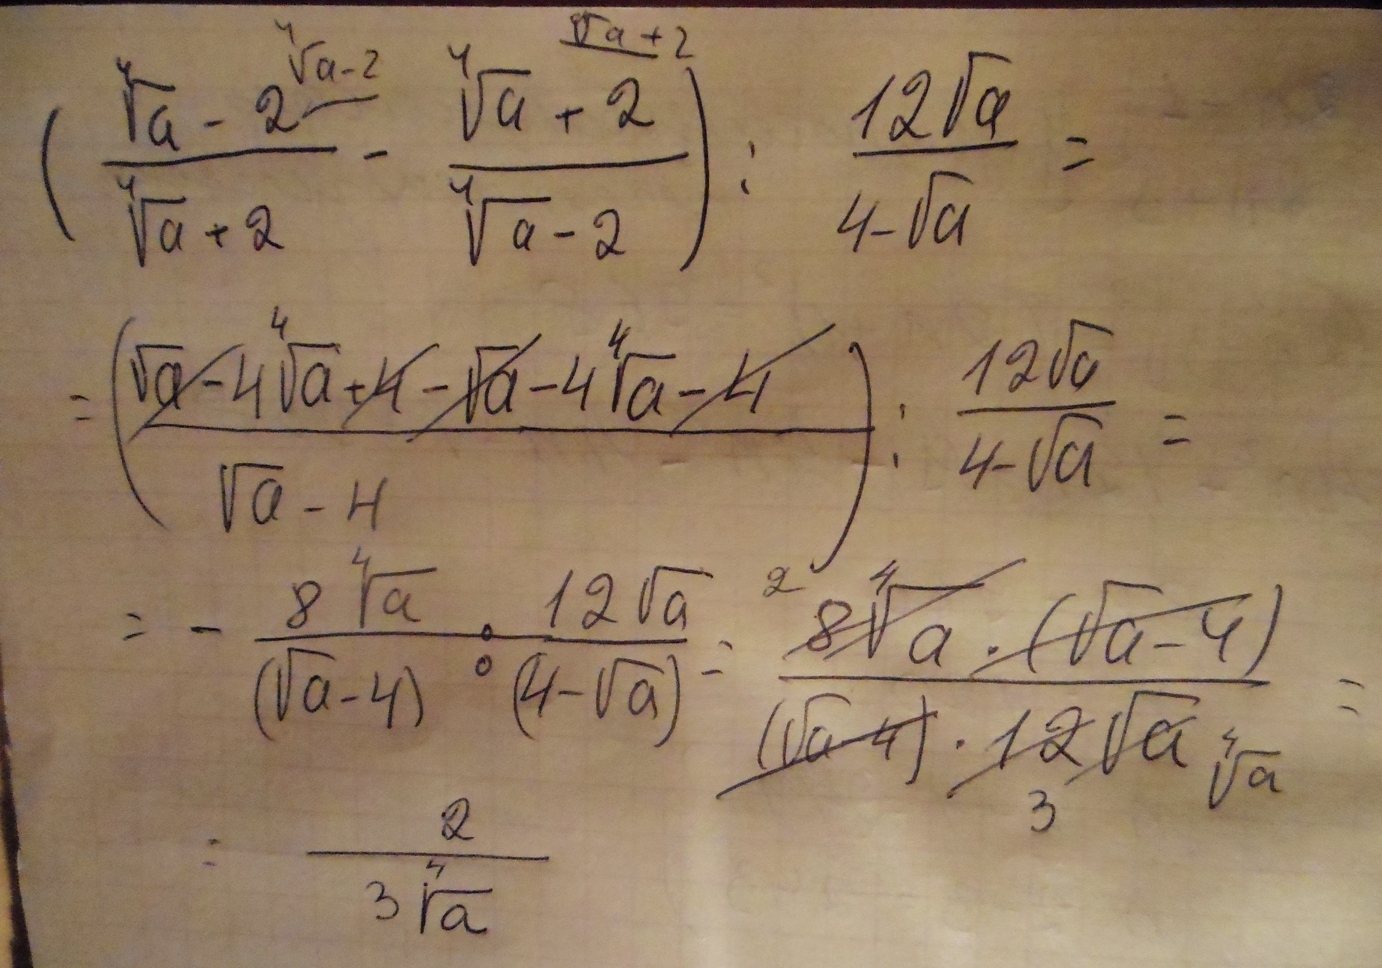 ( (∜a - 2)/(∜a + 2) ∜a-2 - (∜a + 2)/(∜a - 2) ∜a+2 ) : 12√a/(4-√a) =
= ( (√a - 4∜a + 4 - √a - 4∜a - 4)/(√a - 4) ) : 12√a/(4-√a) =
= - 8∜a/(√a-4) : 12√a/(4-√a) = 2 8∜a · (√a-4)/((√a-4) · 12√a) 3 ∜a =
= 2/(3∜a)